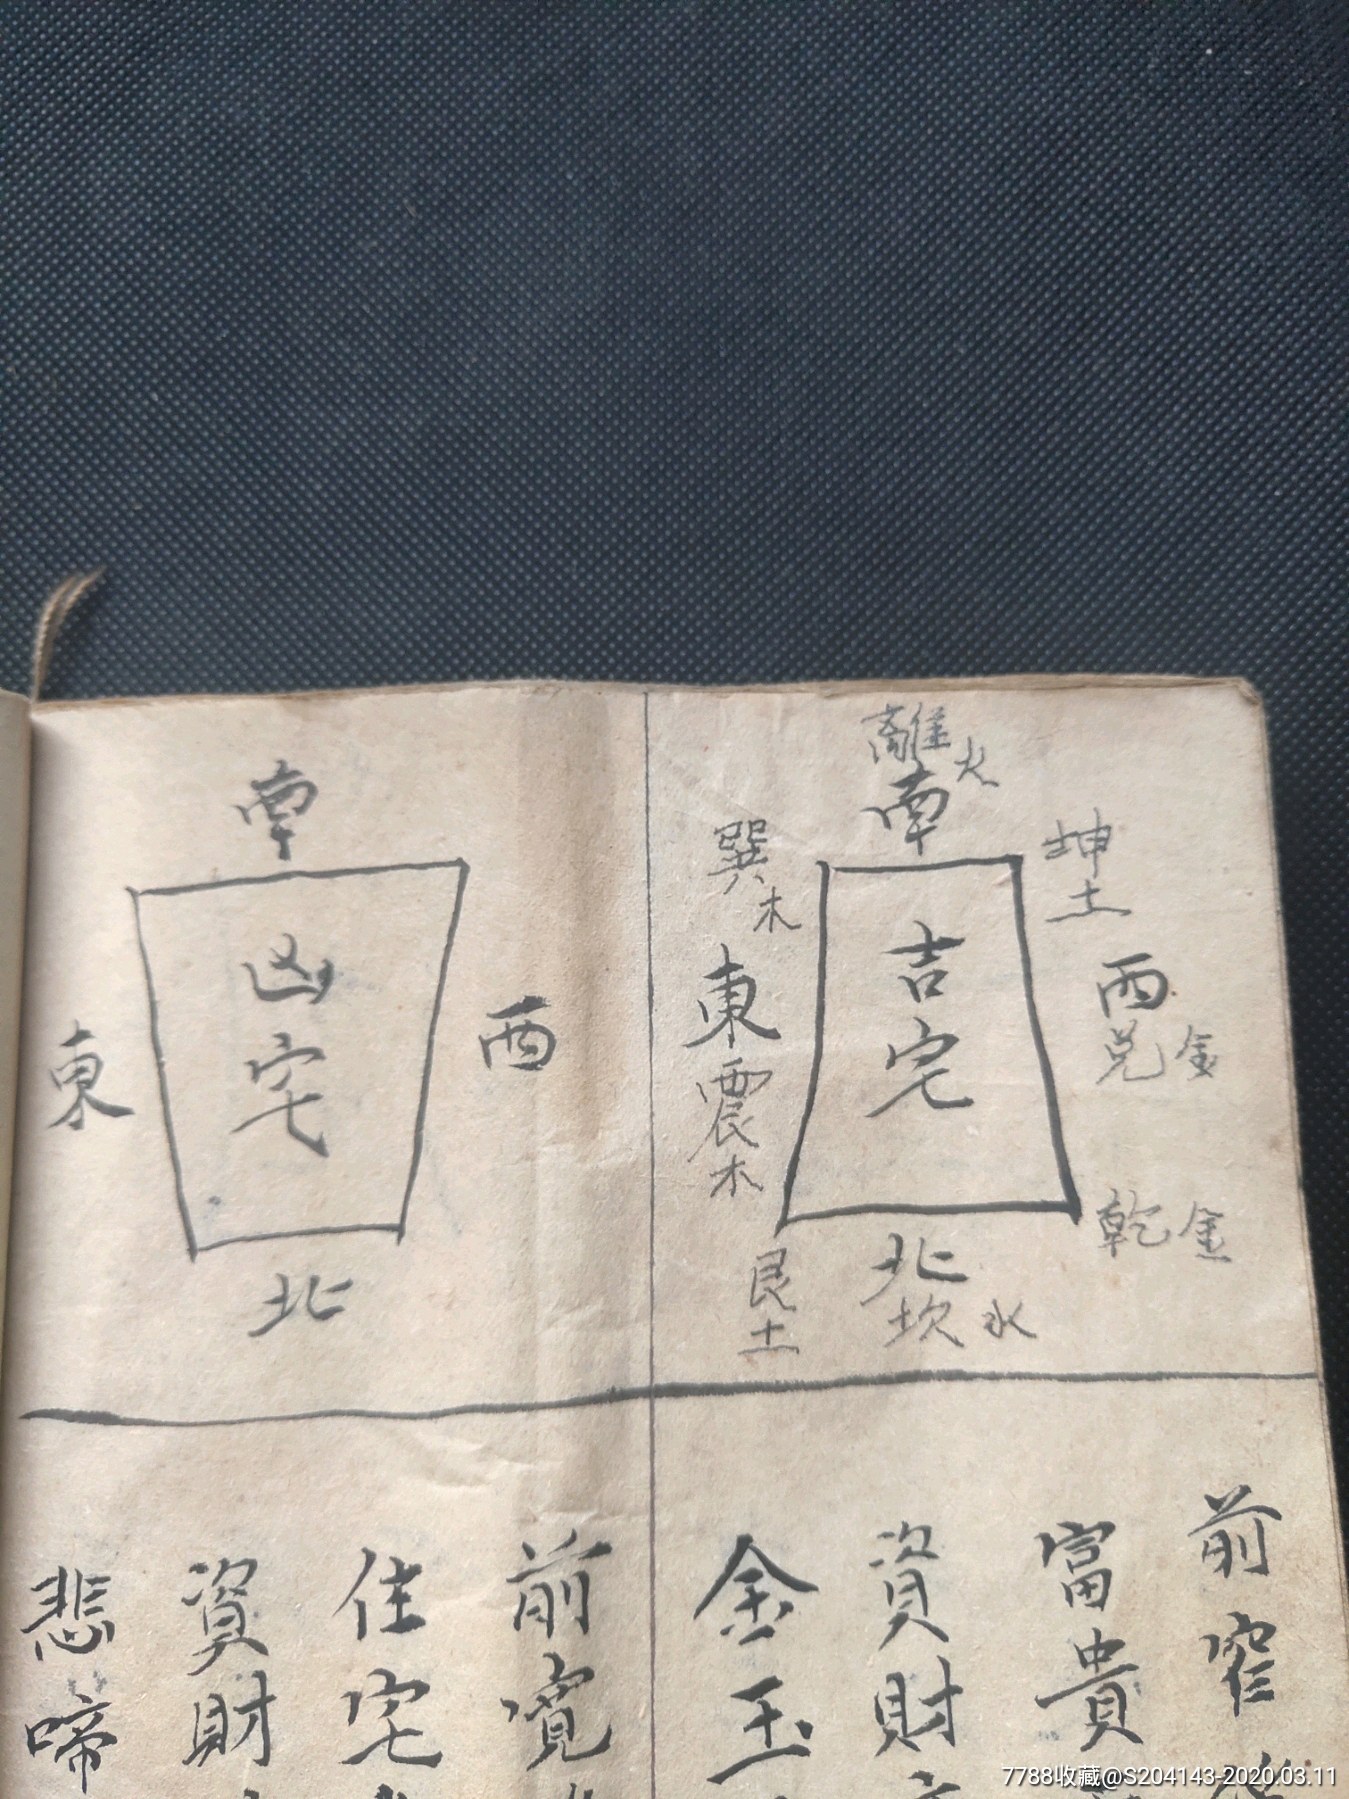 離火
南
坤土
巽木
吉宅
東震木
西兌金
乾金
艮土
北坎水
前窄
富貴
資財
金玉
南
凶宅
東
西
北
前寬
住宅
資財
悲啼
7788收藏@S204143-2020.03.11